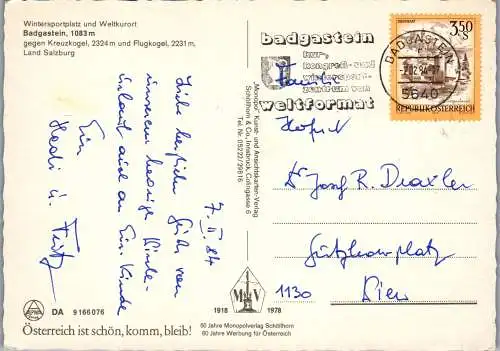 Wintersportplatz und Weltkurort
Badgastein, 1083 m
gegen Kreuzkogel, 2324 m und Flugkogel, 2231 m,
Land Salzburg
7. II. 84
Liebe herzliche Grüße von
unserem heurigen Winter-
urlaub auch an Eure Kinder
Eure
Hedi u. Fritz
DA 9166076
Österreich ist schön, komm, bleib!
"Monopol" Kunst- und Ansichtskarten-Verlag
Schöllhorn & Co., Innsbruck, Colingasse 6
Tel. Nr. (05222) 29816
1918 1978
60 Jahre Monopolverlag Schöllhorn
60 Jahre Werbung für Österreich
badgastein
kur-,
kongreß- und
wintersport-
zentrum von
weltformat
BADGASTEIN
5640
3.50
S
REPUBLIK ÖSTERREICH
Familie
Hofrat
Dr Josef R. Draxler
platz
1130 Wien